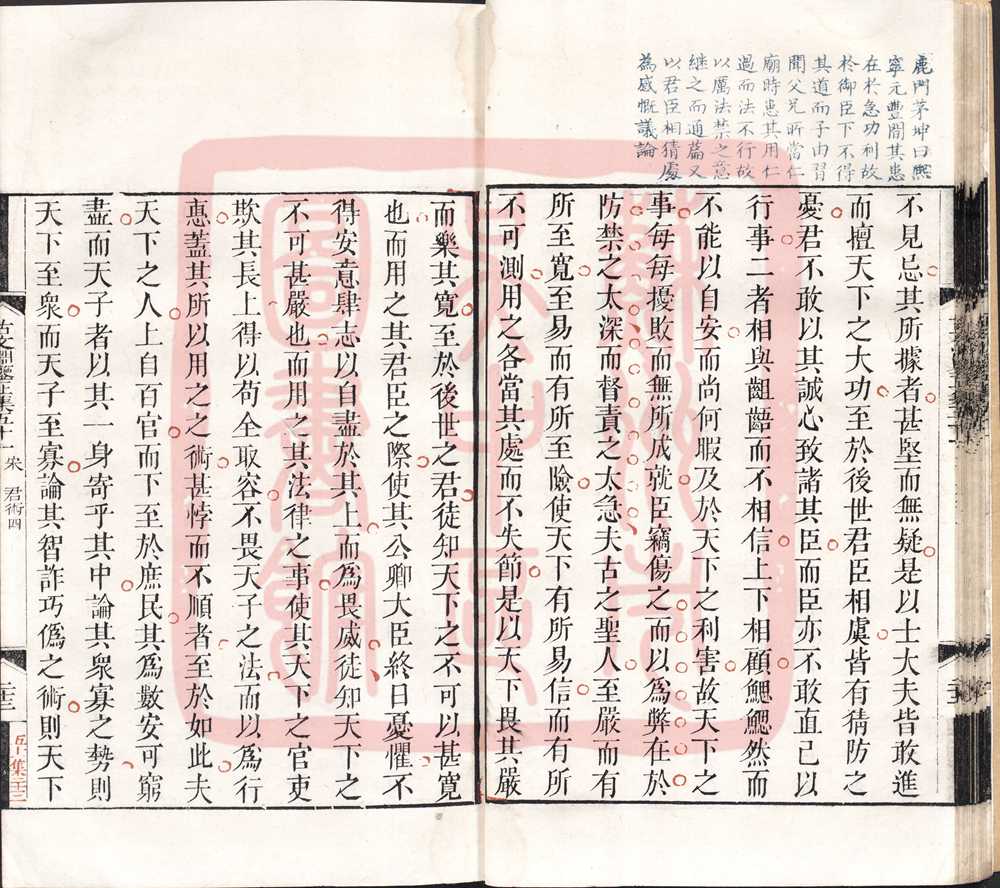 鹿門茅坤曰熙
寧元豐間其患
在於急功利故
於御臣下不得
其道而子由習
聞父兄所當仁
廟時患其用仁
過而法不行故
以厲法禁之意
繼之而通篇又
以君臣相猜處
為感慨議論
不見忌其所據者甚堅而無疑是以士大夫皆敢進
而擅天下之大功至於後世君臣相虞皆有猜防之
憂君不敢以其誠心致諸其臣而臣亦不敢直己以
行事二者相與齟齬而不相信上下相顧鰓鰓然而
不能以自安而尚何暇及於天下之利害故天下之
事每每擾敗而無所成就臣竊傷之而以爲弊在於
防禁之太深而督責之太急夫古之聖人至嚴而有
所至寬至易而有所至險使天下有所易信而有所
不可測用之各當其處而不失節是以天下畏其嚴
而樂其寬至於後世之君徒知天下之不可以甚寬
也而用之其君臣之際使其公卿大臣終日憂懼不
得安意肆志以自盡於其上而爲畏威徒知天下之
不可甚嚴也而用之其法律之事使其天下之官吏
欺其長上得以苟全取容不畏天子之法而以爲行
惠蓋其所以用之之術甚悖而不順者至於如此夫
天下之人上自百官而下至於庶民其爲數安可窮
盡而天子者以其一身寄乎其中論其衆寡之勢則
天下至衆而天子至寡論其智詐巧僞之術則天下
古文淵鑒正集卷五十一 宋 君術四
二十三
圖書館